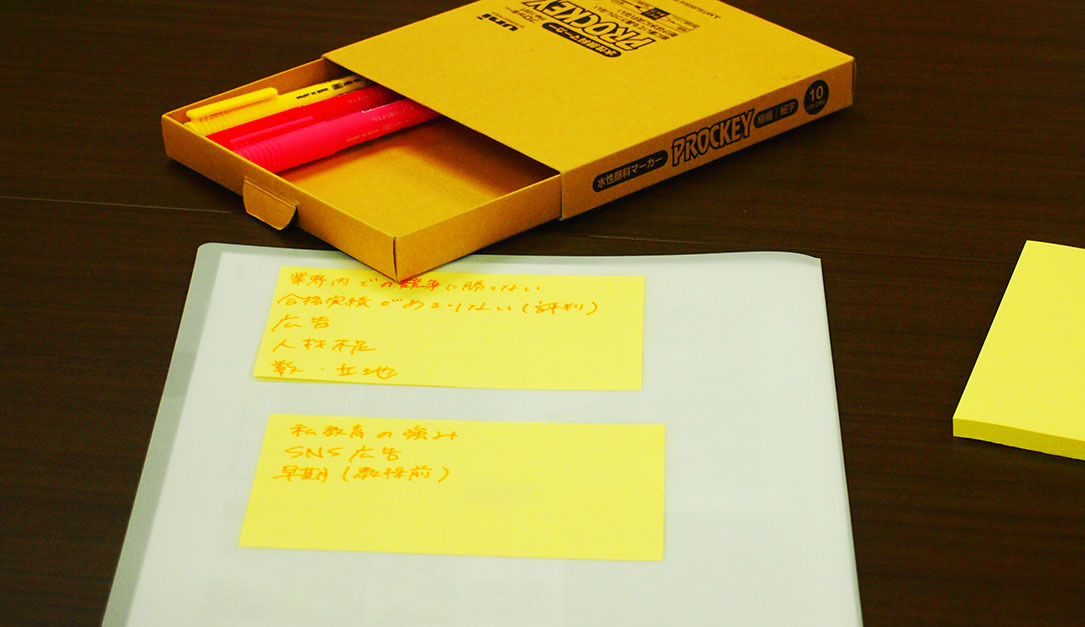 uni
PROCKEY
水性顔料マーカー
水性顔料マーカー PROCKEY 極細 | 細字 10
業界内での競争に勝てない
合格実績があまりない(評判)
広告
人材不足
数・立地
私教育の強み
SNS広告
早期(数検前)